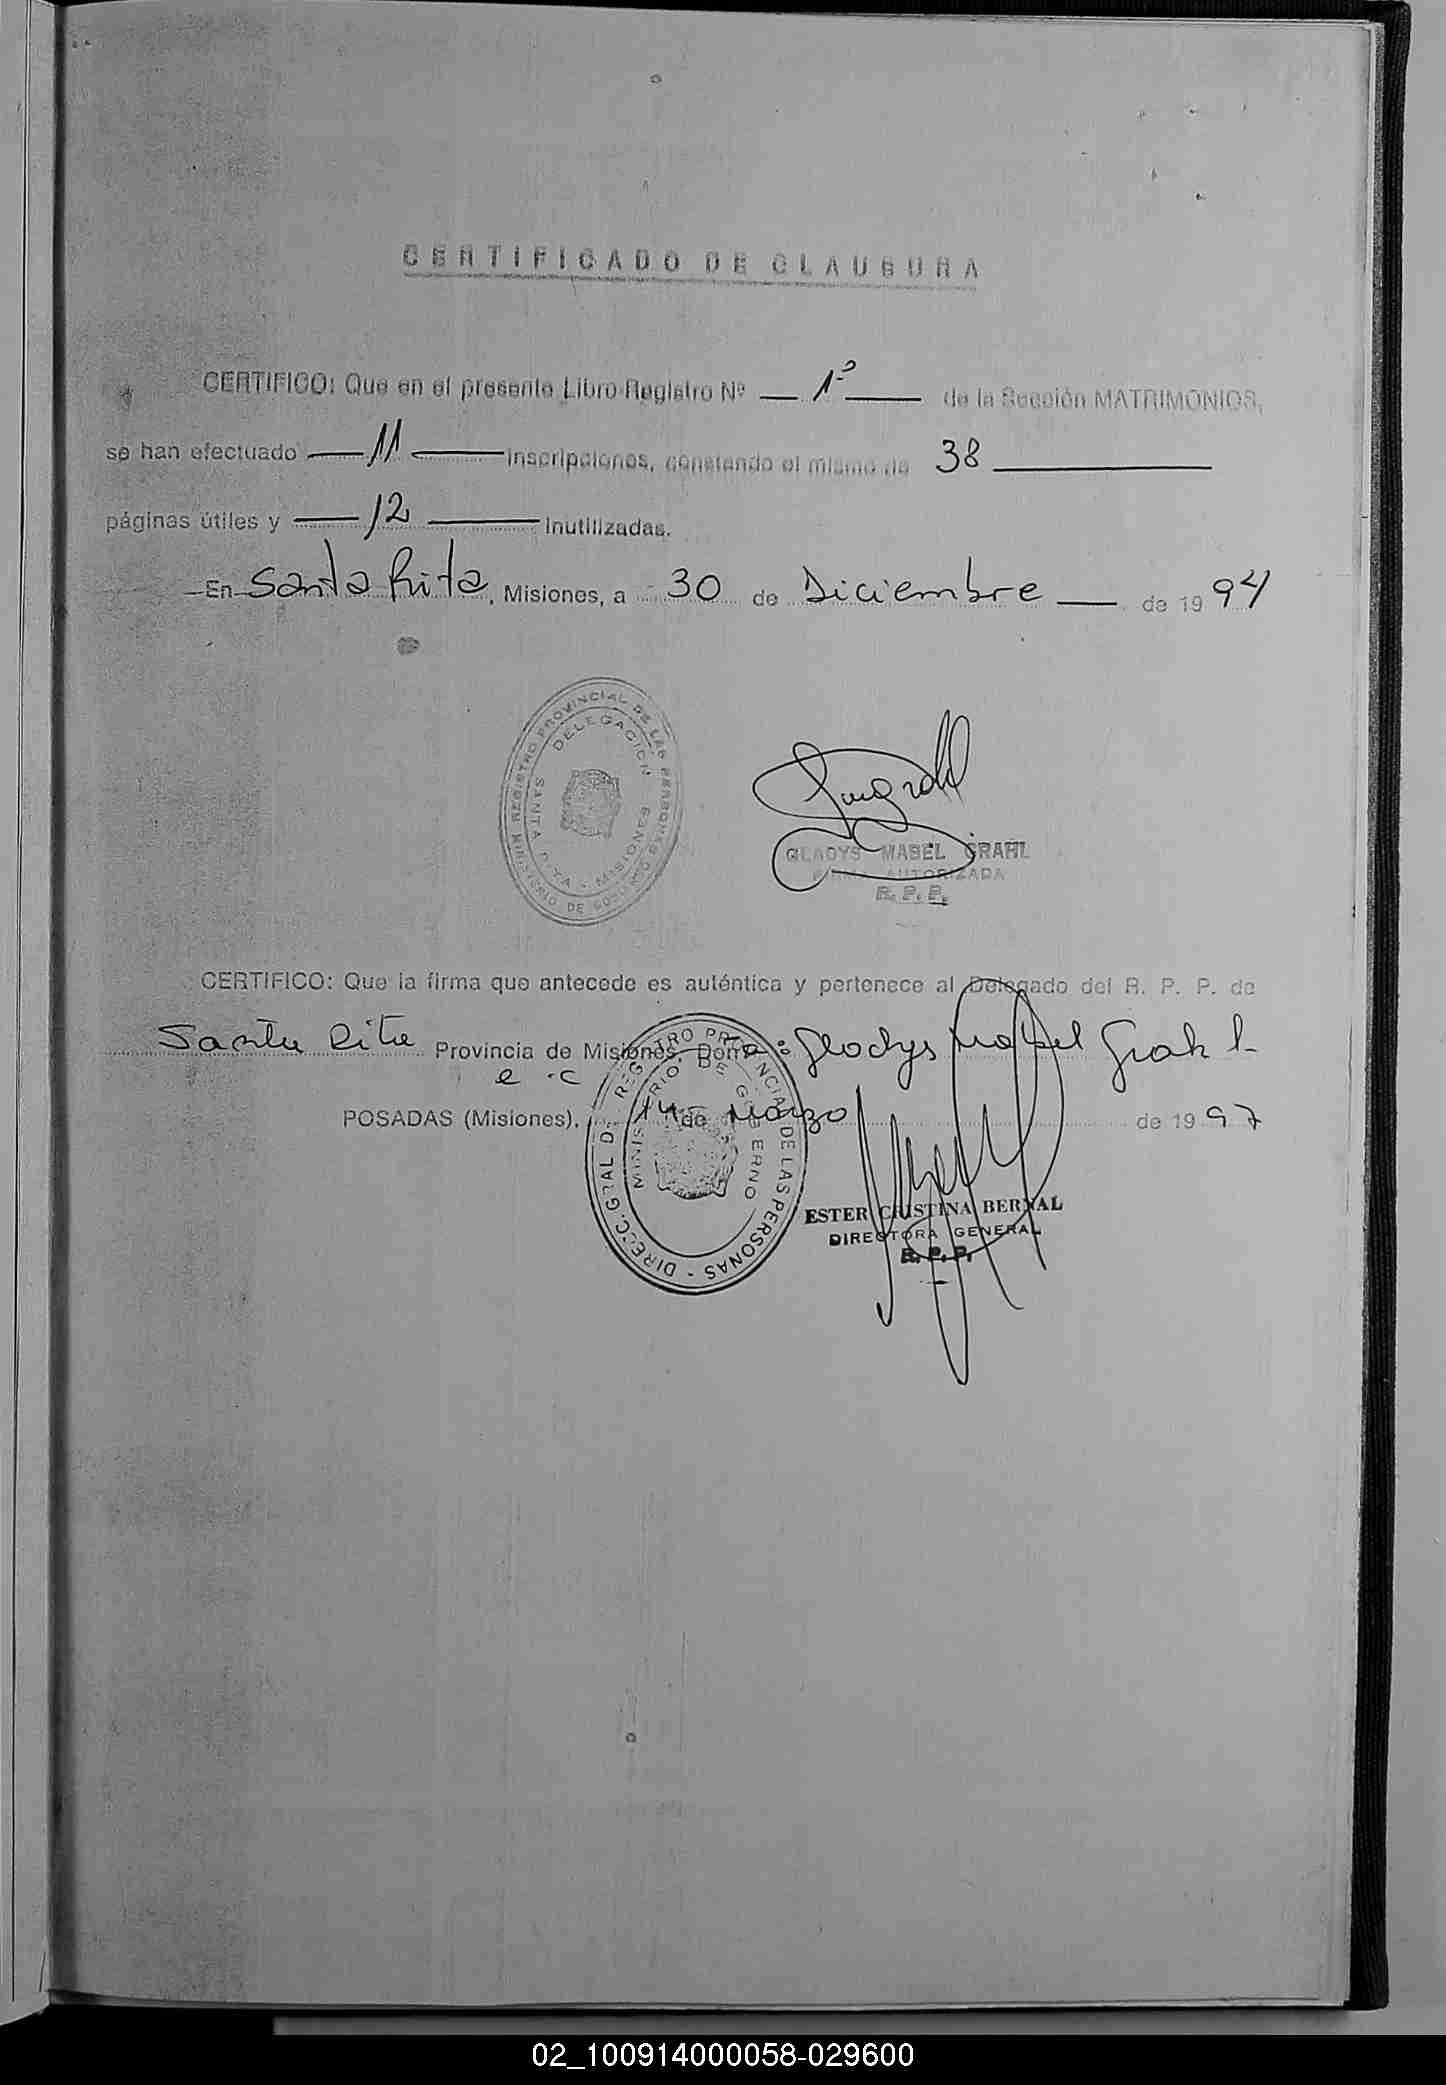 CERTIFICADO DE CLAUSURA
CERTIFICO: Que en el presente Libro Registro Nº — 1º — de la Sección MATRIMONIOS,
se han efectuado — 11 — inscripciones, constando el mismo de 38 —
páginas útiles y — 12 — inutilizadas.
En Santa Rita, Misiones, a 30 de Diciembre — de 1994
REGISTRO PROVINCIAL DE LAS PERSONAS
MINISTERIO DE GOBIERNO
DELEGACIÓN
SANTA RITA - MISIONES
GLADYS MABEL GRAHL
FIRMA AUTORIZADA
R. P. P.
CERTIFICO: Que la firma que antecede es auténtica y pertenece al Delegado del R. P. P. de
Santa Rita Provincia de Misiones, Doña: Gladys Mabel Grahl
POSADAS (Misiones), 14 de Marzo de 1997
DIRECC. GRAL DE REGISTRO PROVINCIAL DE LAS PERSONAS
MINISTERIO DE GOBIERNO
ESTER CRISTINA BERNAL
DIRECTORA GENERAL
R. P. P.
02_100914000058-029600